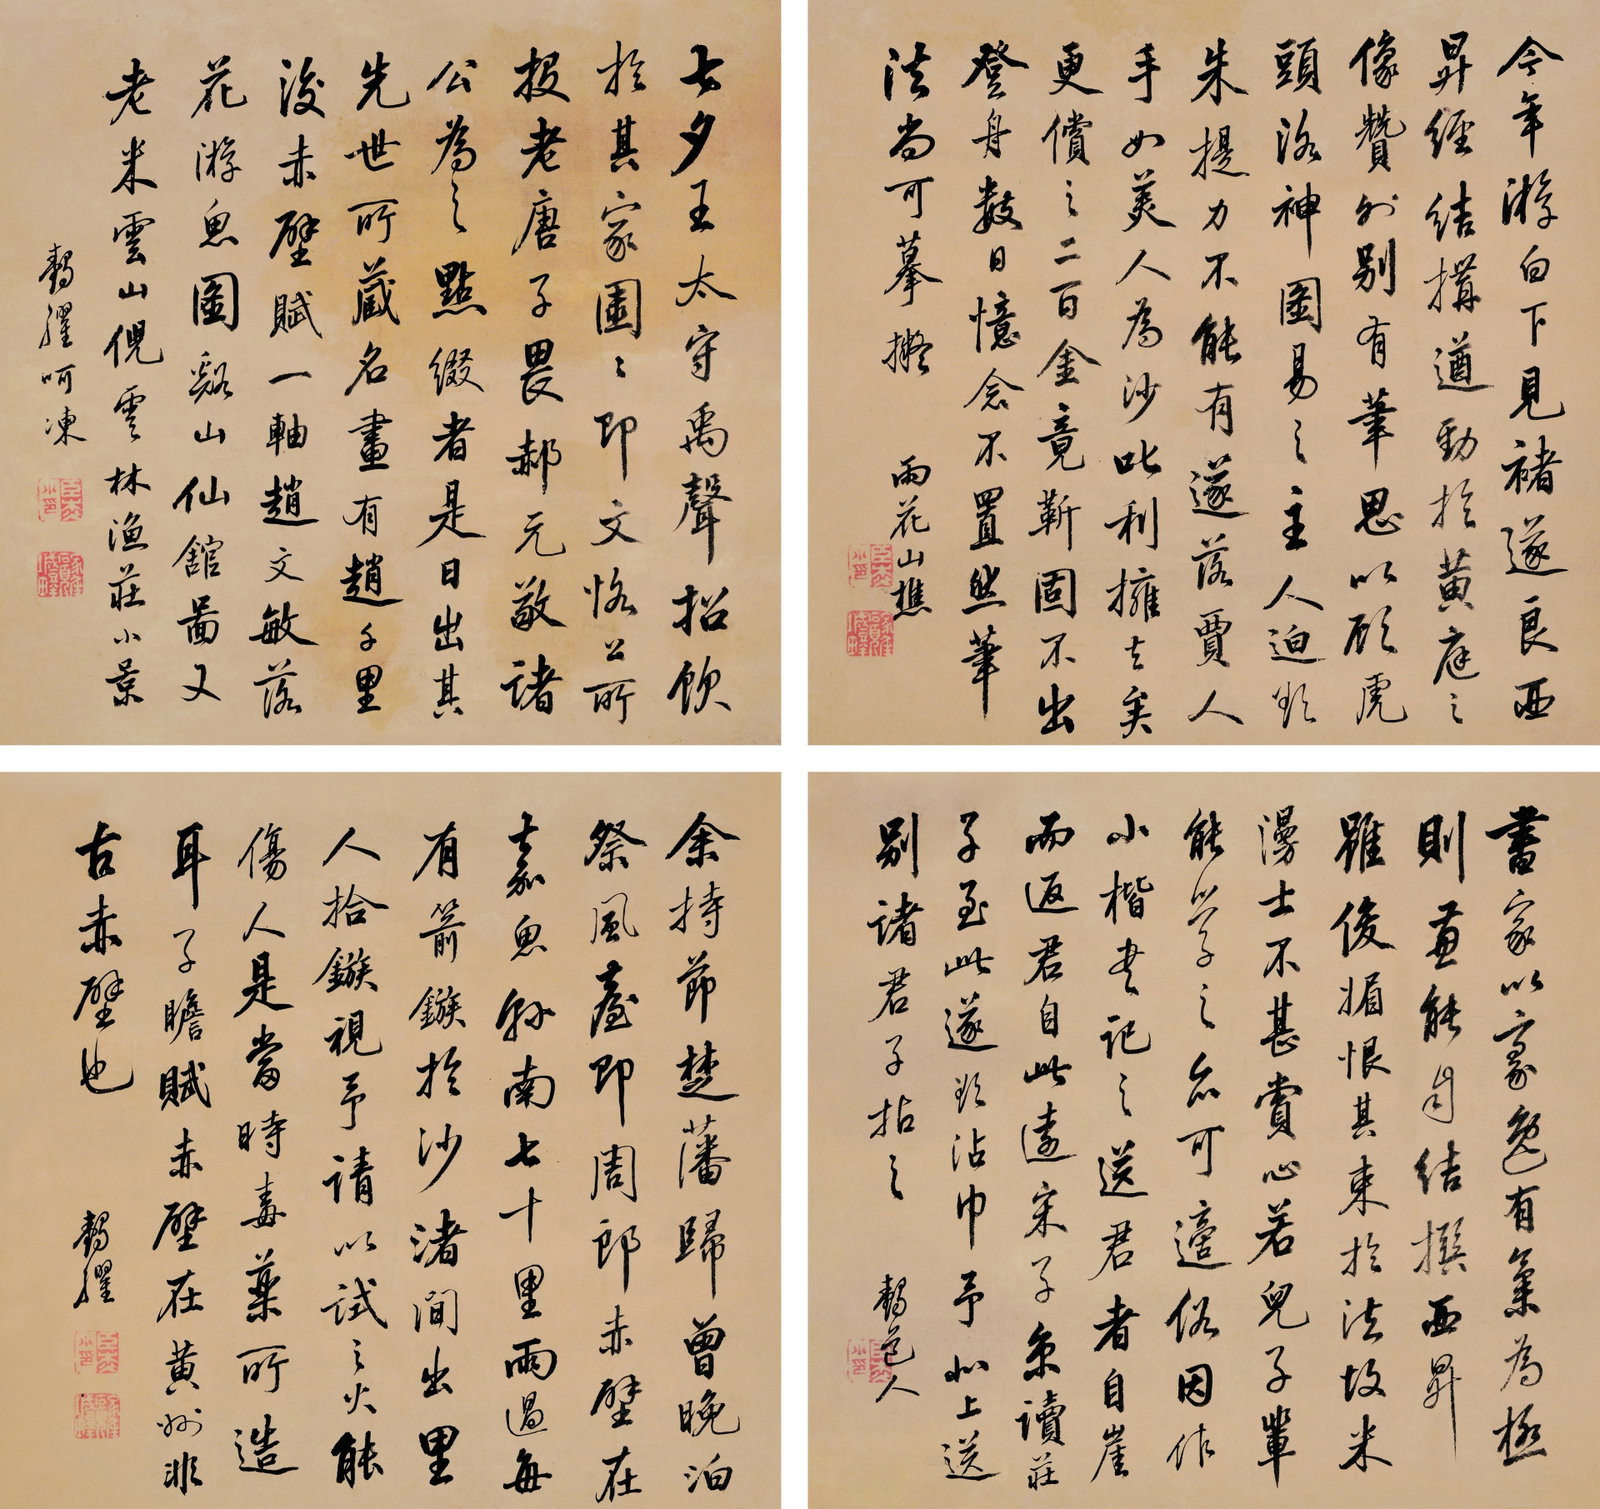 今年游白下見褚遂良西
昇經結搆遒勁於黃庭之
像贊外別有筆思以顧虎
頭洛神圖易之主人迫欲
朱提力不能有遂落賈人
手如美人為沙叱利擁去矣
更償之二百金竟靳固不出
登舟數日憶念不置然筆
法尚可摹擬 雨花山樵
七夕王太守禹聲招飲
於其家園〻即文恪公所
投老唐子畏郝元敬諸
公為之點綴者是日出其
先世所藏名畫有趙千里
後赤壁賦一軸趙文敏落
花游魚圖谿山仙館圖又
老米雲山倪雲林漁莊小景
鶴癯呵凍
書家以豪逸有氣為極
則兼能自結撰西昇
雖俊媚恨其束於法故米
漫士不甚賞心若兒子輩
能學之亦可適俗因作
小楷書記之送君者自崖
而返君自此遠宋子京讀莊
子至此遂欲沾巾予北上送
別諸君子拈之 鶴邑人
余持節楚藩歸曾晚泊
祭風臺即周郎赤壁在
嘉魚縣南七十里雨過每
有箭鏃於沙渚間出里
人拾鏃視予請以試之火能
傷人是當時毒藥所造
耳子瞻賦赤壁在黃州非
古赤壁也 鶴癯